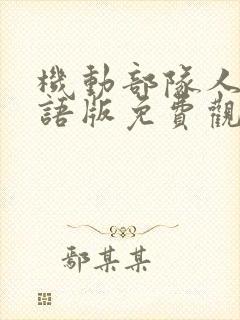 機動部隊人
語版免費觀
鄢某某